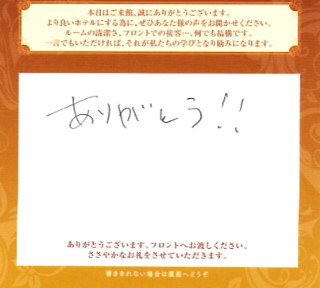 本日はご来館、誠にありがとうございます。
より良いホテルにする為に、ぜひあなた様の声をお聞かせください。
ルームの清潔さ、フロントでの接客…、何でも結構です。
一言でもいただければ、それが私たちの学びとなり励みになります。
ありがとう!!
ありがとうございます。フロントへお渡しください。
ささやかなお礼をさせていただきます。
書ききれない場合は裏面へどうぞ